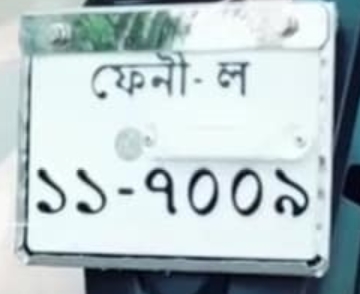 ফেনী-ল
১১-৭০০৯